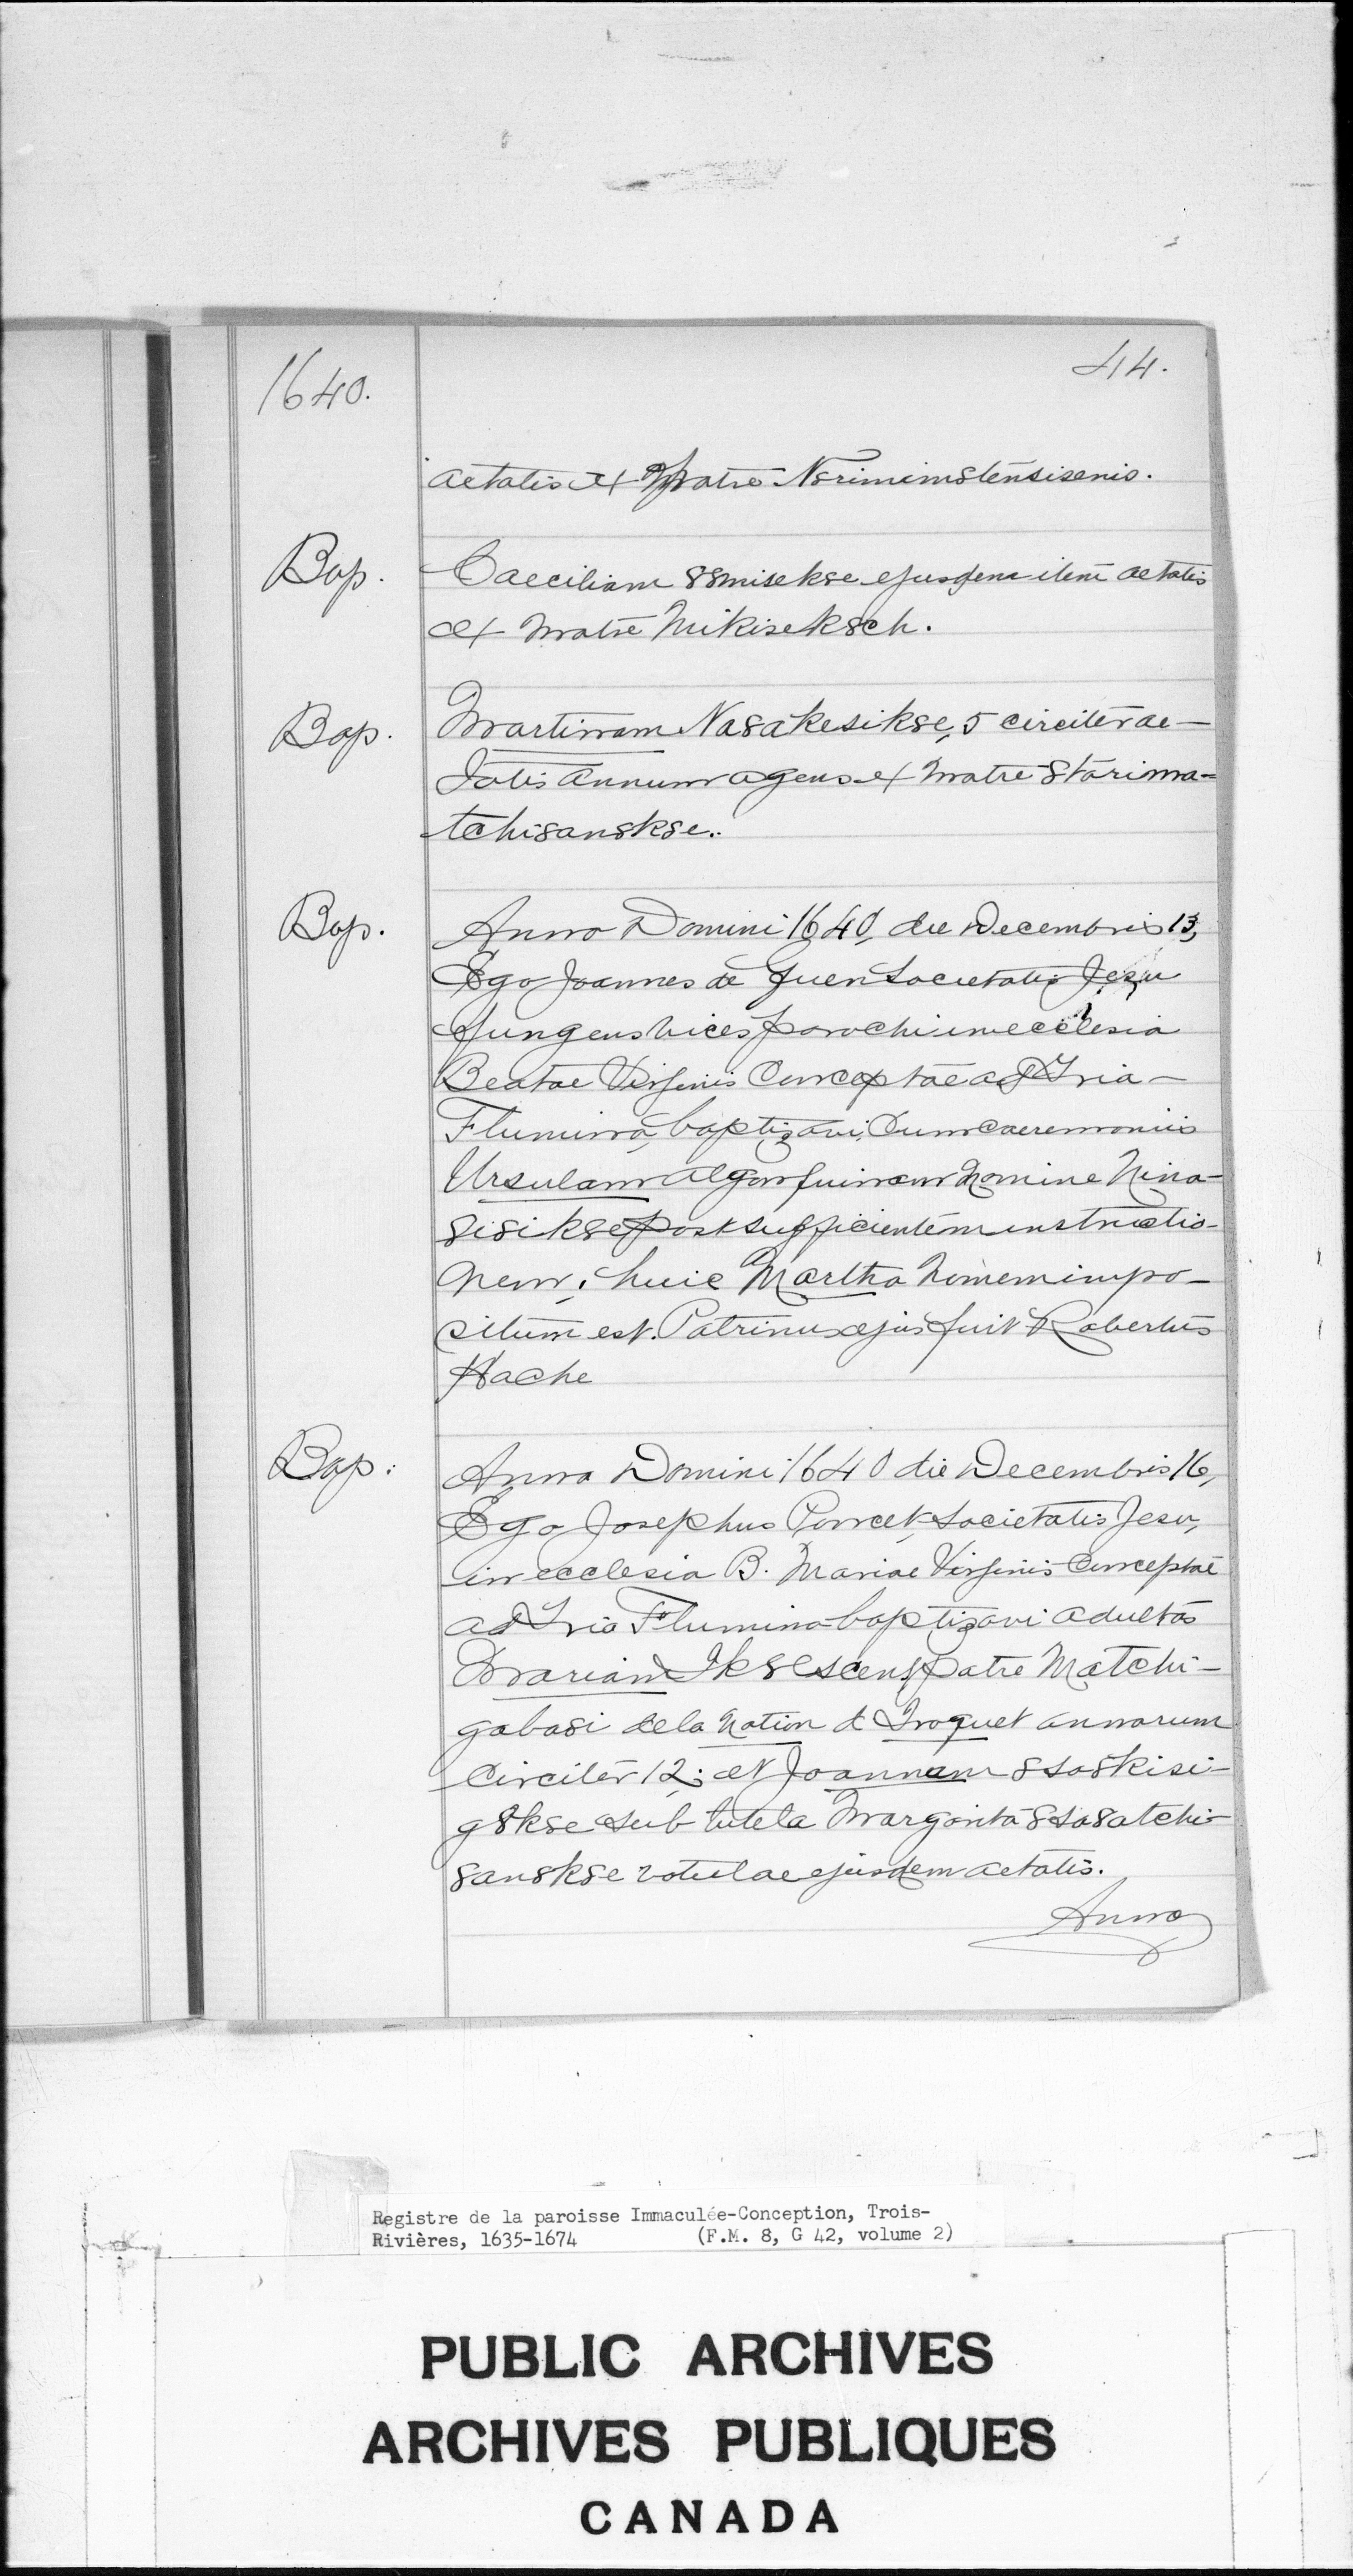 1640.
44.
aetatis ex Matre N8rimim8tensisenis.
Bap. Caeciliam 88misek8e ejusdem item aetatis
ex matre Nikisek8ch.
Bap. Martinam Na8akesik8e, 5 circiter ae-
tatis annum agens ex matre 8tarima-
tchi8ansk8e..
Bap. Anno Domini 1640, die Decembris 13,
Ego Joannes de Quen Societatis Jesu
fungens vices parochi in ecclesia
Beatae Virginis Conceptae ad Tria-
Flumina, baptizavi cum caeremoniis
Ursulam algonquinam nomine Nina-
8i8ik8e post sufficientem instructio-
nem; huic Martha nomem impo-
situm est. Patrinus ejus fuit Robertus
Hache
Bap: Anno Domini 1640 die Decembris 16,
Ego Josephus Poncet Societatis Jesu,
in ecclesia B. Mariae Virginis Conceptae
ad Tria Flumina baptizavi adultas
Mariam Ik8escens, patre Matchi-
gabasi de la nation d Iroquet annorum
circiter 12; et Joannam 8sa8kisi-
g8k8e sub tutela Margarita 8sa8atchi-
8ansk8e votulae ejusdem aetatis.
Anno
Registre de la paroisse Immaculée-Conception, Trois-
Rivières, 1635-1674 (F.M. 8, G 42, volume 2)
PUBLIC ARCHIVES
ARCHIVES PUBLIQUES
CANADA